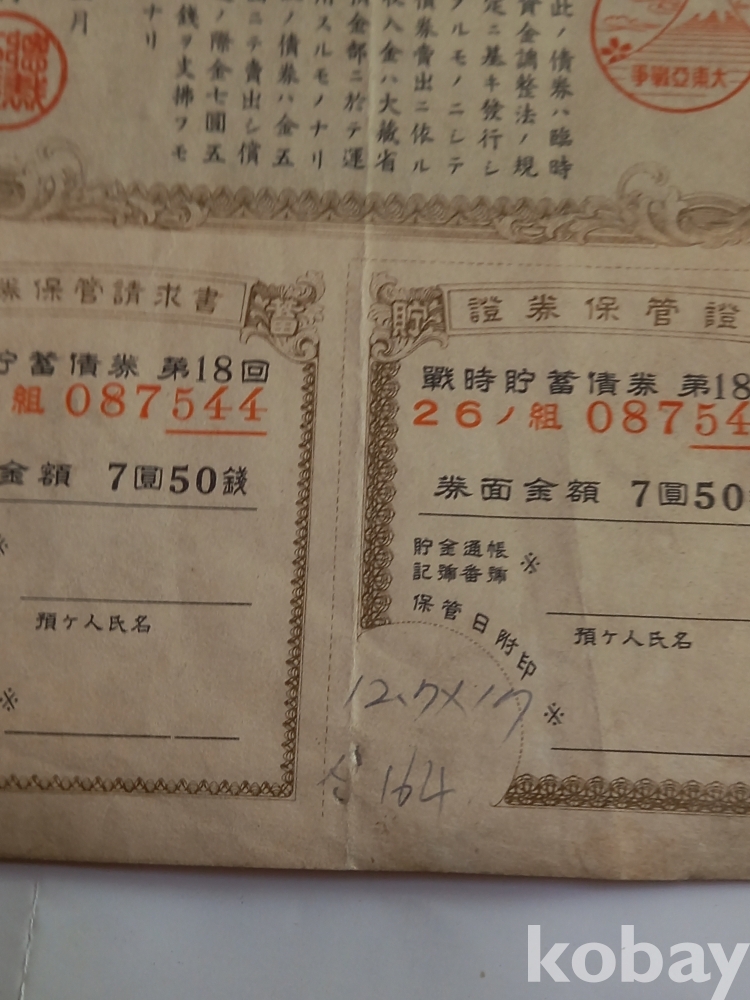 此ノ債券ハ臨時
資金調整法ノ規
定ニ基キ發行シ
タルモノニシテ
債券賣出ニ依ル
收入金ハ大藏省
預金部ニ於テ運
用スルモノナリ
ノ債券ハ金五
ニテ賣出シ償
ノ際金七圓五
錢ヲ支拂フモ
ナリ
月
大東亞戰爭
券保管請求書
蓄
貯蓄債券 第18回
組 087544
金額 7圓50錢
※
預ケ人氏名
※
貯
證券保管證
戰時貯蓄債券 第18
26ノ組 08754
券面金額 7圓50
貯金通帳
記號番號
※
保管日附印
預ケ人氏名
※
12.7×17
164
kobay